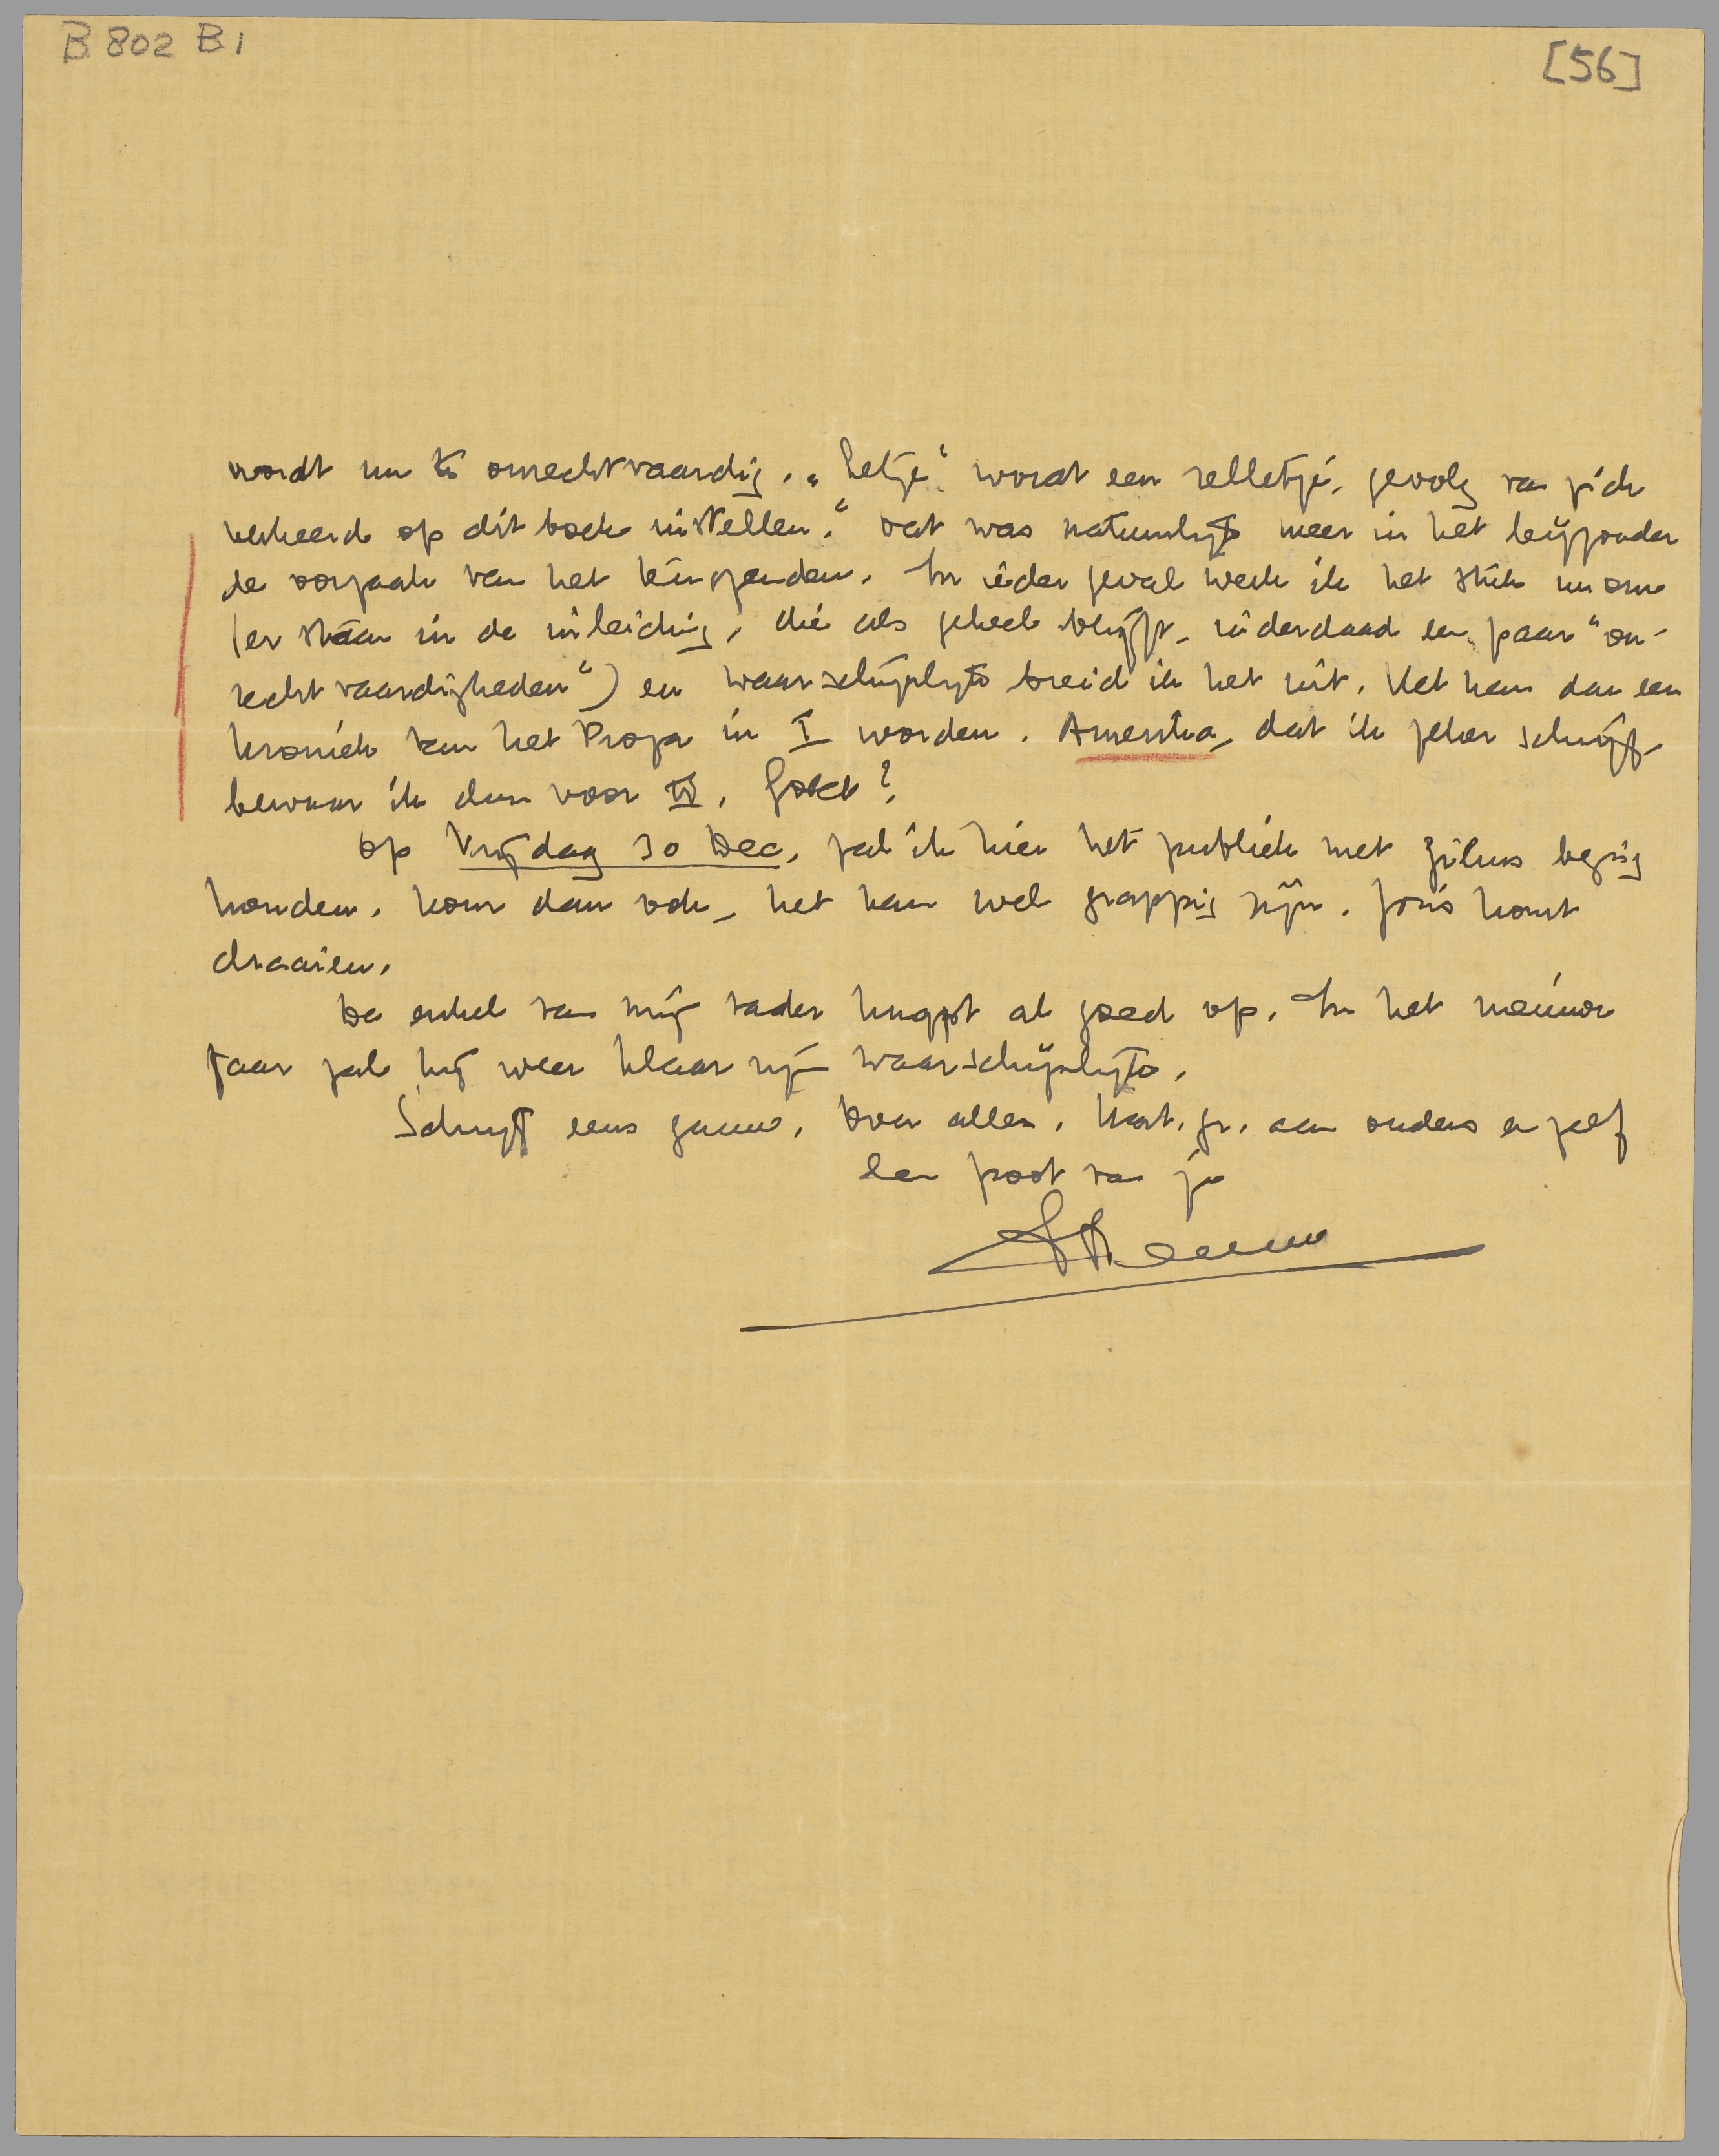 B 802 B1
[56]
wordt nu te onrechtvaardig. „Hetje" wordt een relletje, gevolg van zich
verkeerd op dit boek instellen." Dat was natuurlijk meer in het bijzonder
de oorzaak van het terugzenden. In ieder geval werk ik het stuk nu om
(er staan in de inleiding, die als geheel blijft, inderdaad een paar "on-
rechtvaardigheden") en waarschijnlijk breid ik het uit. Het kan dan een
kroniek van het Proza in I worden. Amentia, dat ik zeker schrijf,
bewaar ik dan voor II. Goed?
Op Vrijdag 30 Dec. zal ik hier het publiek met films bezig
houden. Kom dan ook, het kan wel grappig zijn. Joris komt
draaien.
De enkel van mij vader knapt al goed op. In het nieuwe
jaar zal hij weer klaar zijn waarschijnlijk.
Schrijf eens gauw. Over alles. Hart. gr. aan ouders en zelf
een poot van je
Menno